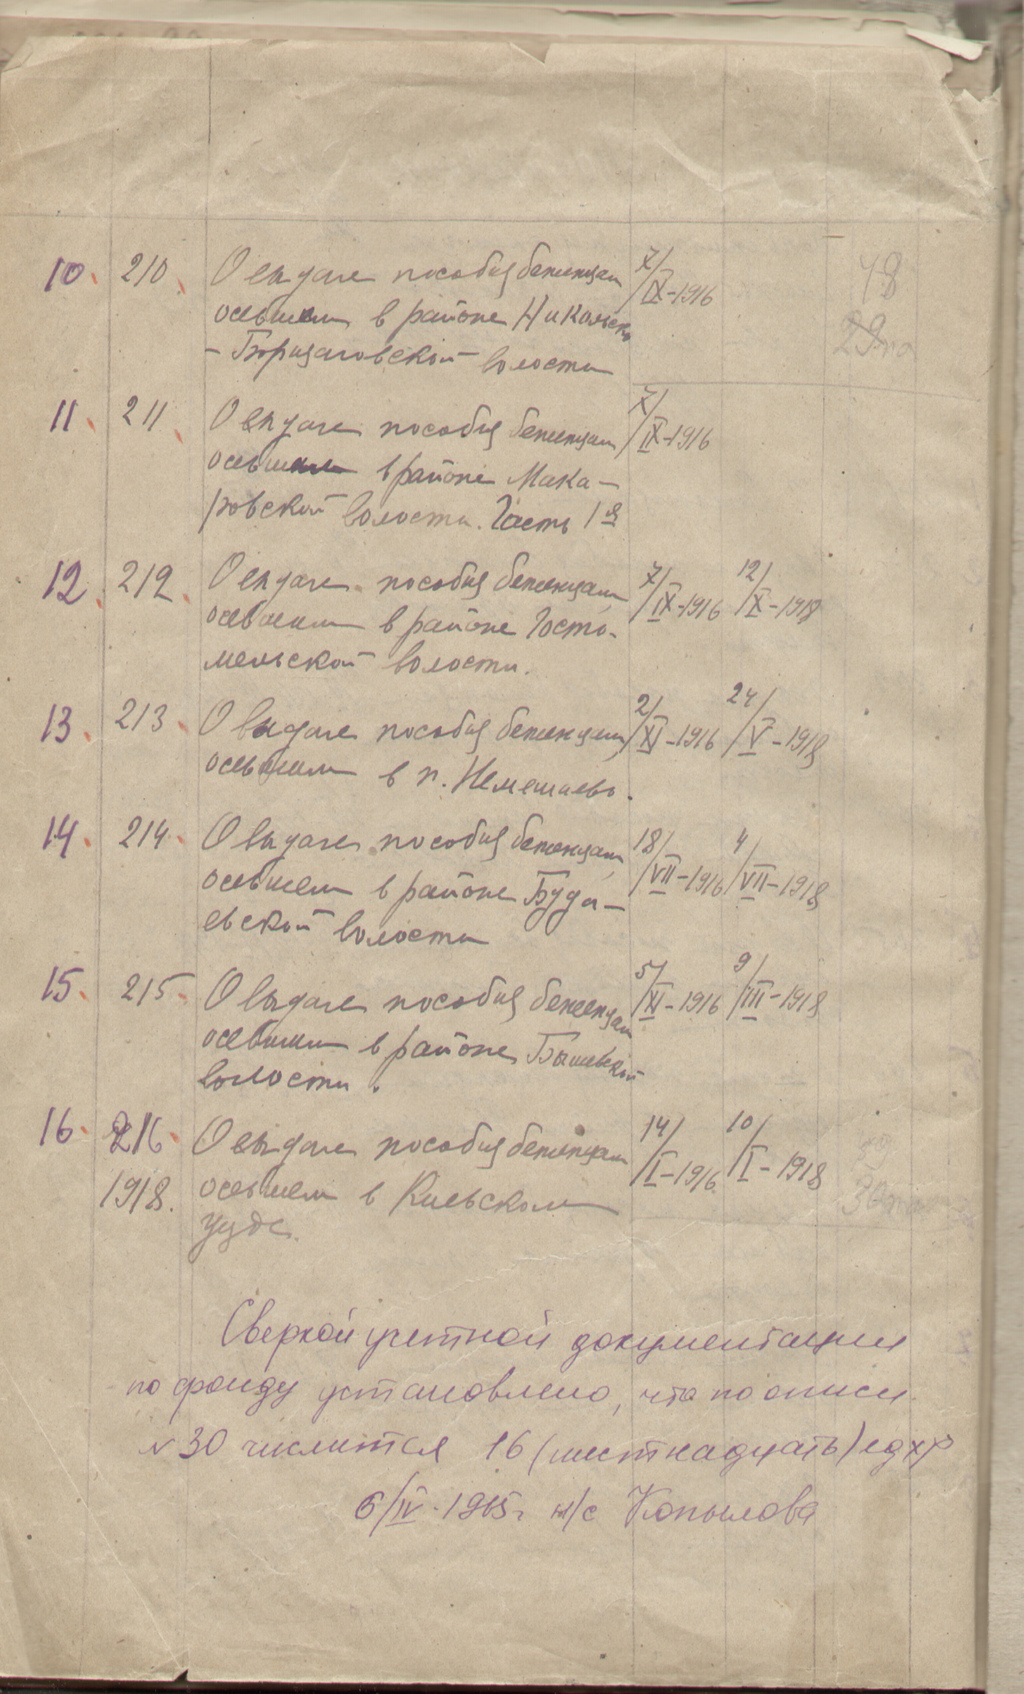 10. 210. О выдаче пособия беженцам 7/IX-1916 48
осевшем в районе Никольско
- Борщаговской волости
11. 211. О выдаче пособия беженцам 7/IX-1916
осевшим в районе Мака-
ровской волости. Часть 1я
12. 212. О выдаче пособия беженцам 7/IX-1916 12/X-1918
осевшим в районе Госто-
мельской волости.
13. 213. О выдаче пособия беженцам 2/XI-1916 24/V-1918
осевшим в п. Немешаево.
14. 214. О выдаче пособия беженцам 18/VII-1916 4/VII-1918
осевшем в районе Буда-
евской волости
15. 215. О выдаче пособия беженцам 5/XI-1916 9/III-1918
осевшим в районе Бышевской
волости.
16. 216. О выдаче пособия беженцам 14/I-1916 10/I-1918
1918. осевшем в Киевском
уезде.
Сверкой учетной документации
по фонду установлено, что по описи
№ 30 числится 16 (шестнадцать) ед хр
6/IV-1965г Копылова